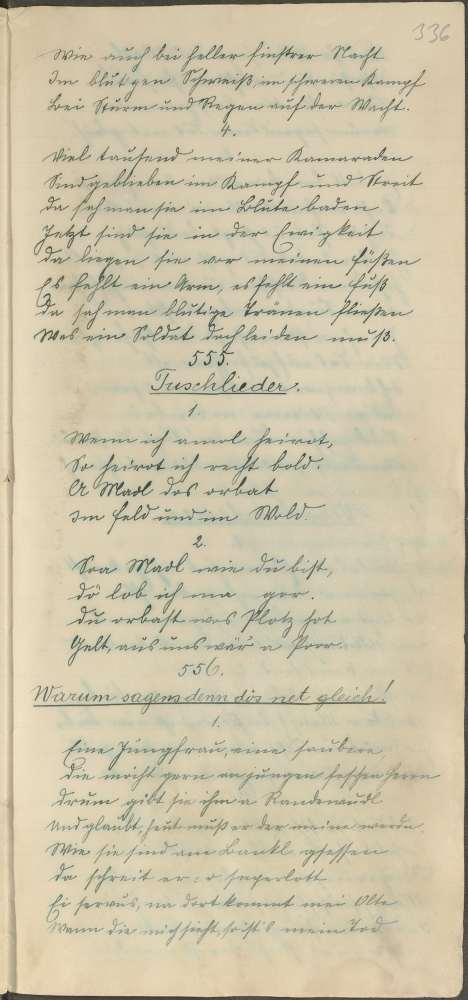 336
Wie auch bei heller finstrer Nacht
Im blutgen Schweiß im schweren Kampf
Bei Sturm und Regen auf der Wacht.
4.
Viel tausend meiner Kamaraden
Sind geblieben im Kampf und Streit
Da sah man sie im Blute baden
Jetzt sind sie in der Ewigkeit
Da liegen sie vor meinen Füßen
Es fehlt ein Arm, es fehlt ein Fuß
Da sah man blutige Tränen fließen
Was ein Soldat doch leiden muß.
555.
Tuschlieder.
1.
Wenn ich amol heirot,
So heirot ich recht bold.
A Madl das orbat
Im Feld und im Wold.
2.
Soa Madl wie du bist,
dö lob ich ma gor.
du orbast was Plotz hot
Gelt, aus uns wär a Poor.
556.
Warum sagens denn dös net gleich!
1.
Eine Jungfrau, eine saubere
die möcht gern an jungen feschen Herrn
Drum gibt sie ihm a Randewudl
Und glaubt, heut muß er der meine werdn.
Wie sie sind am Bankl gsessen
Da schreit er: o
Ei servus, na dort kommt mei Olte
Wann die mich sieht, so ist's mein Tod.